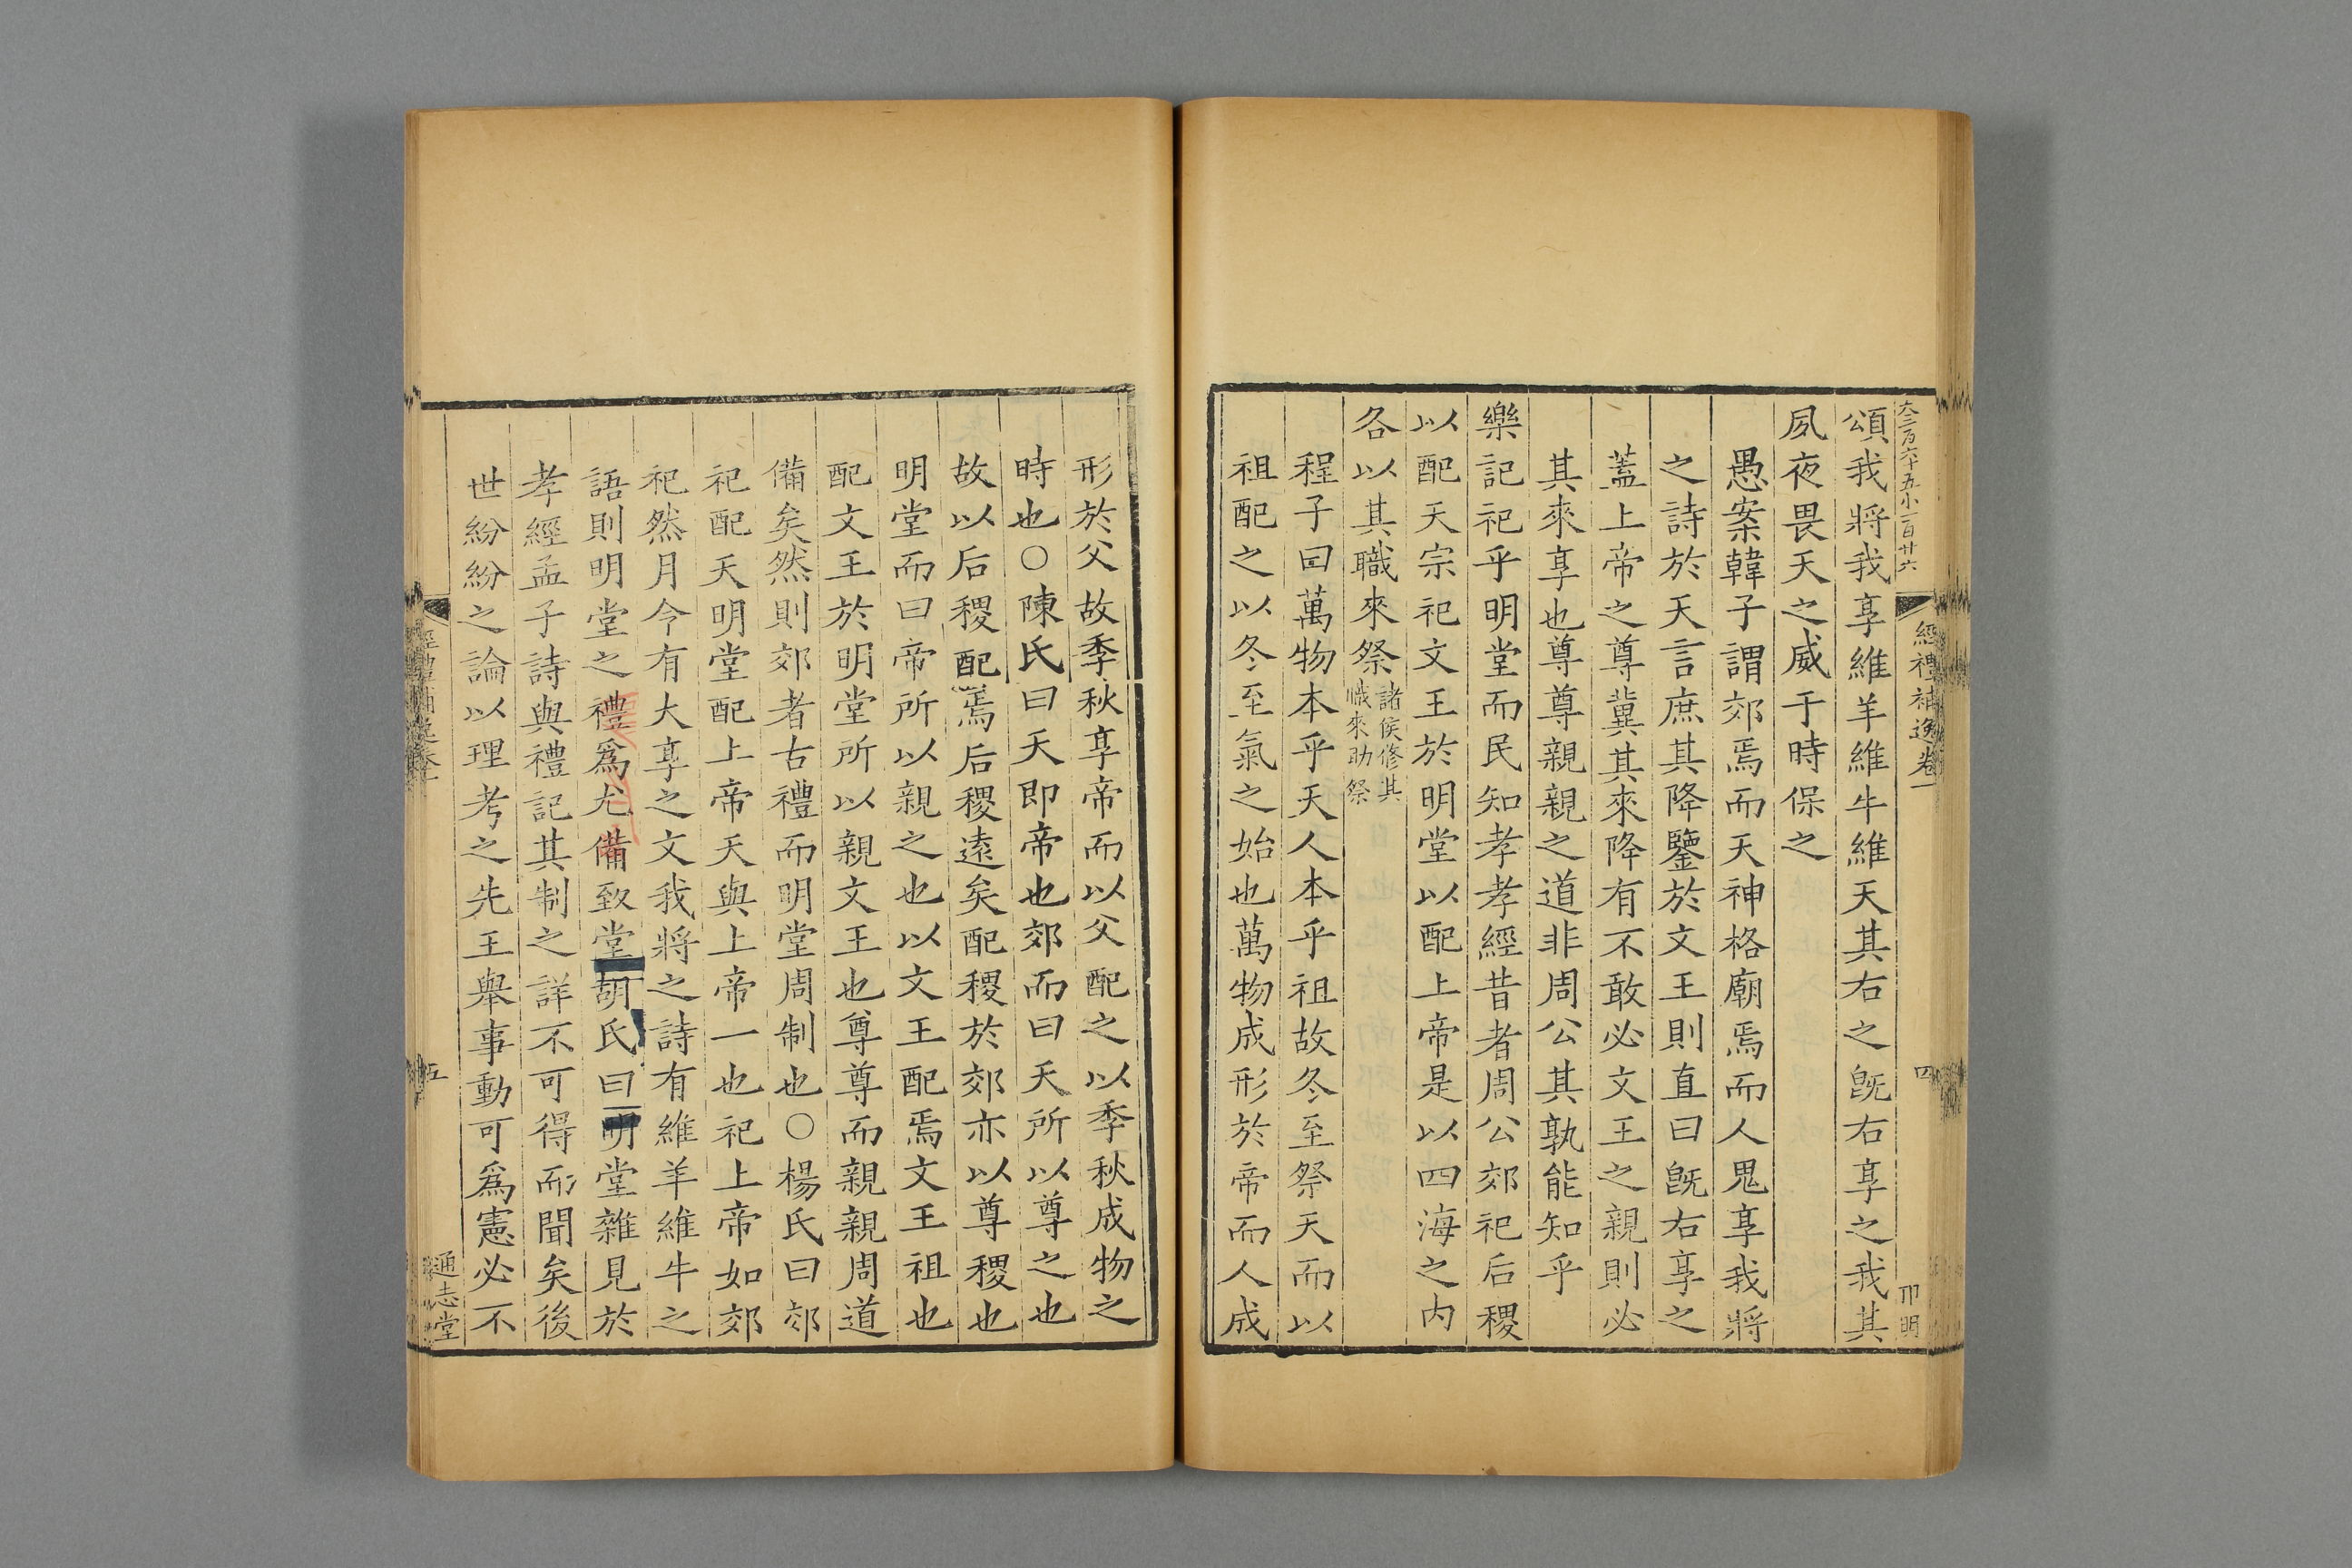 大三百六十五小一百廿六
經禮補逸卷一
四
卭明
頌我將我享維羊維牛維天其右之旣右享之我其
夙夜畏天之威于時保之
愚案韓子謂郊焉而天神格廟焉而人鬼享我將
之詩於天言庶其降鑒於文王則直曰旣右享之
蓋上帝之尊冀其來降有不敢必文王之親則必
其來享也尊尊親親之道非周公其孰能知乎
樂記祀乎明堂而民知孝孝經昔者周公郊祀后稷
以配天宗祀文王於明堂以配上帝是以四海之内
各以其職來祭諸侯修其
職來助祭
程子曰萬物本乎天人本乎祖故冬至祭天而以
祖配之以冬至氣之始也萬物成形於帝而人成
形於父故季秋享帝而以父配之以季秋成物之
時也○陳氏曰天即帝也郊而曰天所以尊之也
故以后稷配焉后稷遠矣配稷於郊亦以尊稷也
明堂而曰帝所以親之也以文王配焉文王祖也
配文王於明堂所以親文王也尊尊而親親周道
備矣然則郊者古禮而明堂周制也○楊氏曰郊
祀配天明堂配上帝天與上帝一也祀上帝如郊
祀然月令有大享之文我將之詩有維羊維牛之
語則明堂之禮爲尤備致堂胡氏曰明堂雜見於
孝經孟子詩與禮記其制之詳不可得而聞矣後
世紛紛之論以理考之先王舉事動可爲憲必不
經禮補逸卷一
五
通志堂